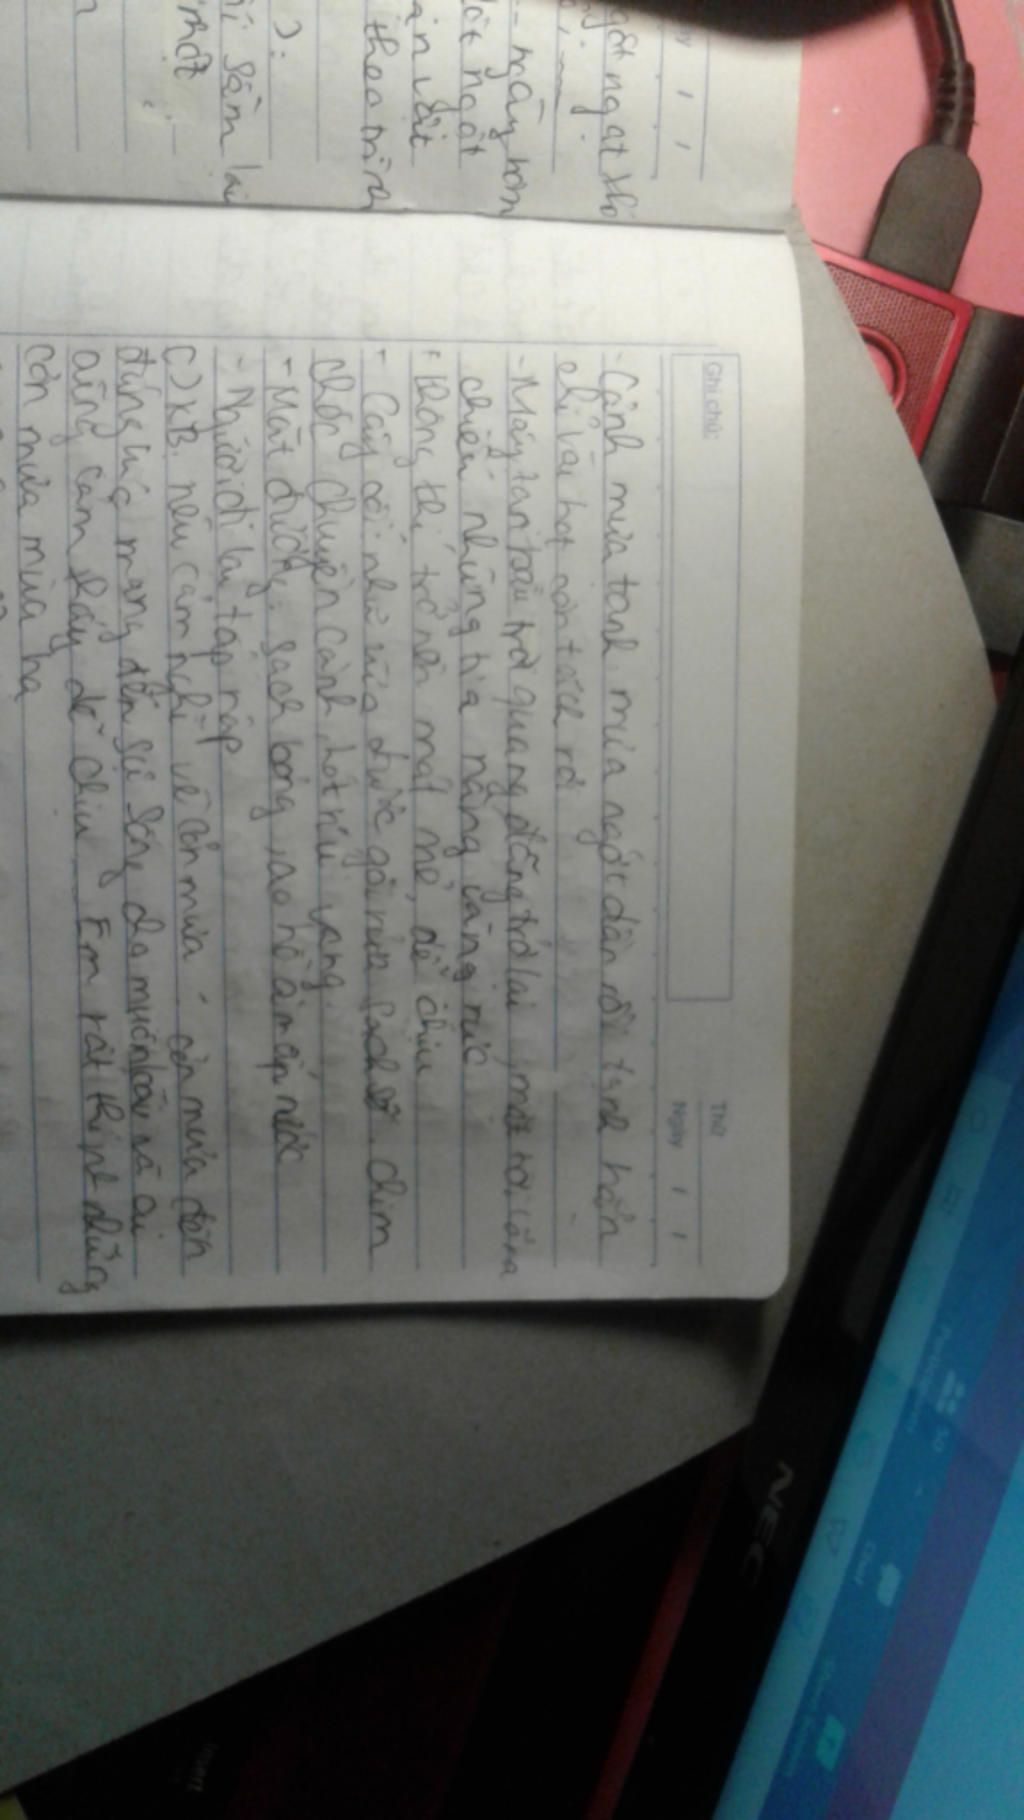 Ghi chú:
Thứ
Ngày / /
- Cảnh mưa tạnh: mưa ngớt dần rồi tạnh hẳn
chỉ vài hạt còn tách rơi
- Mây tan bầu trời quang đãng trở lại, mặt trời càng
chiếu những tia nắng vàng rực
- Không khí trở nên mát mẻ, dễ chịu
- Cây cối như vừa được gội rửa sạch sẽ. chim
chóc chuyền cành, hót ríu
- Mặt đường: sạch bóng, ao hồ ăm ắp nước
- Người đi lại tấp nập
C) KB. nêu cảm nghĩ về cơn mưa: cơn mưa đến
đúng lúc mang đến sự sống cho muôn loài và ai
cũng cảm thấy dễ chịu. Em rất thích những
cơn mưa mùa hạ
gột ngạt
mây
đột ngột
theo trình
sấm
NEC
Participants
50
Chat
Share Screen
Insert